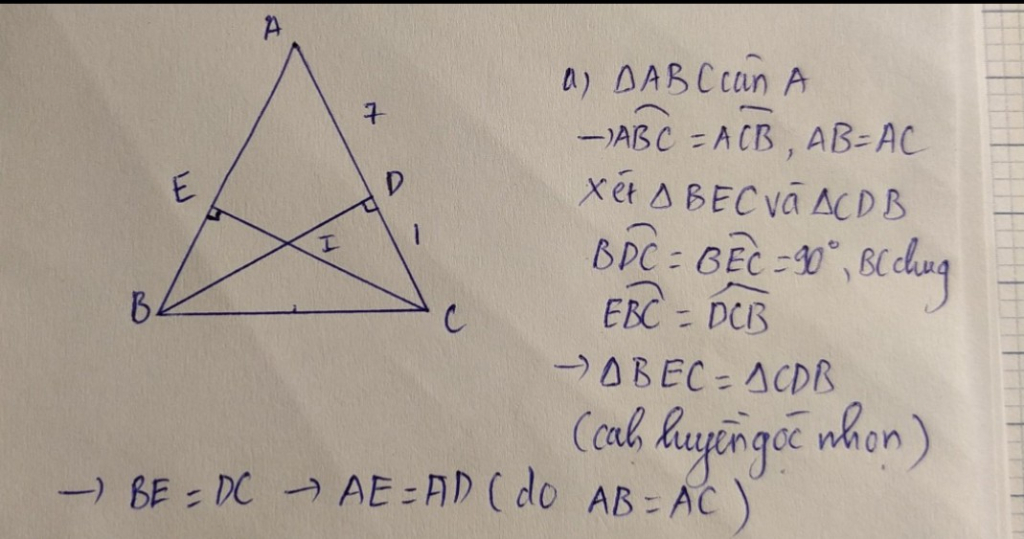 A
7
E
D
I
1
B
C
a) ΔABC cân A
→ \widehat{ABC} = \widehat{ACB}, AB=AC
Xét ΔBEC và ΔCDB
\widehat{BDC} = \widehat{BEC} = 90°, BC chung
\widehat{EBC} = \widehat{DCB}
→ ΔBEC = ΔCDB
(cạh huyền góc nhọn)
→ BE = DC → AE = AD (do AB = AC)